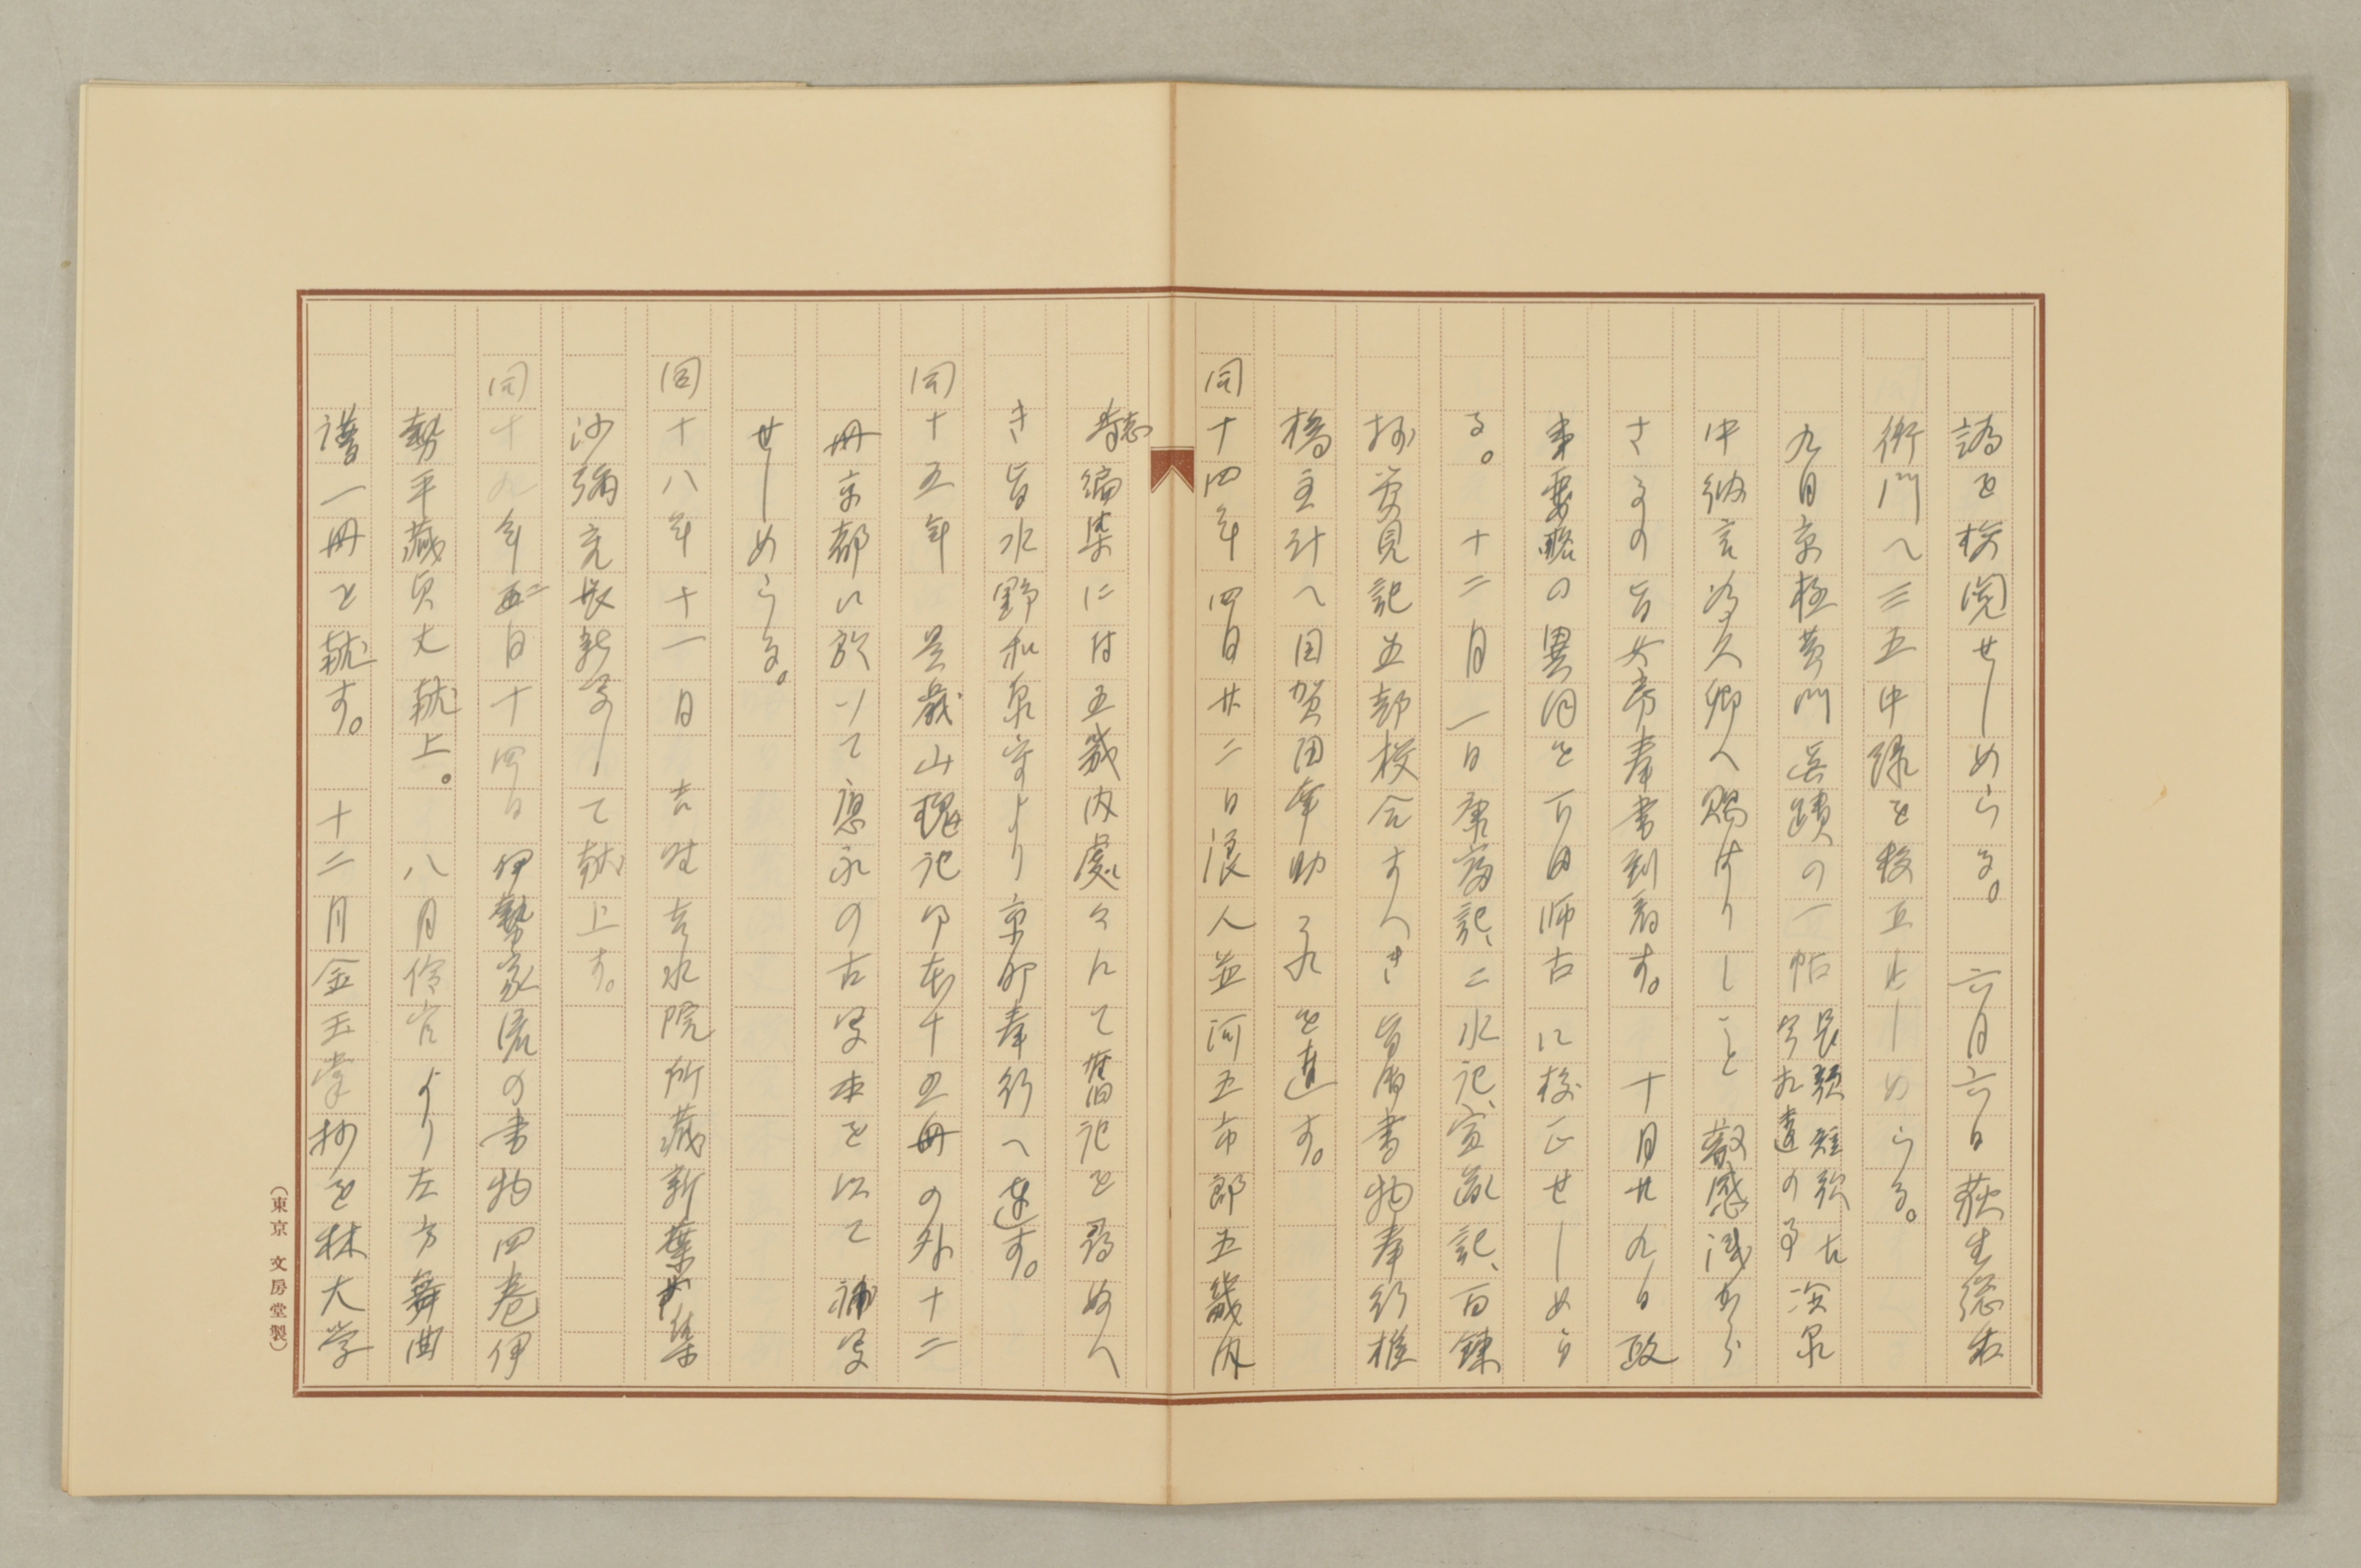 譌を検閲せしめらる。　六月六日荻生惣右
衛門へ三五中略を校正せしめらる。
九日京極黄門真蹟の一帖長歌短歌古今相違の事冷泉
中納言為久卿へ賜はりしこと叡感浅から
さるの旨女房奉書到着す。　十月廿九日政
事要略の異同を下田師古に校正せしめら
る。　十二月一日康富記、二水記、宣胤記、百錬
抄愛見記五部校合すへき旨御書物奉行松
橋主計へ田賀田幸助これを達す。
同十四年四月廿二日浪人並河五市郎五畿内
志編集には五畿内處々にて舊記を尋ぬへ
き旨水野和泉守より京都奉行へ達す。
同十五年　是歳山槐記印本十五冊の外十二
冊京都に於いて應永の古写本を以て補写
せしめらる。
同十八年十一月　吉野吉水院所蔵新葉集
沙弥元盛新写して献上す。
同十九年二月十四日伊勢家流の書物四巻伊
勢平蔵貞丈献上。　八月伶官より左方舞曲
譜一冊を献す。　十二月金玉掌抄を林大学
（東京　文房堂製）